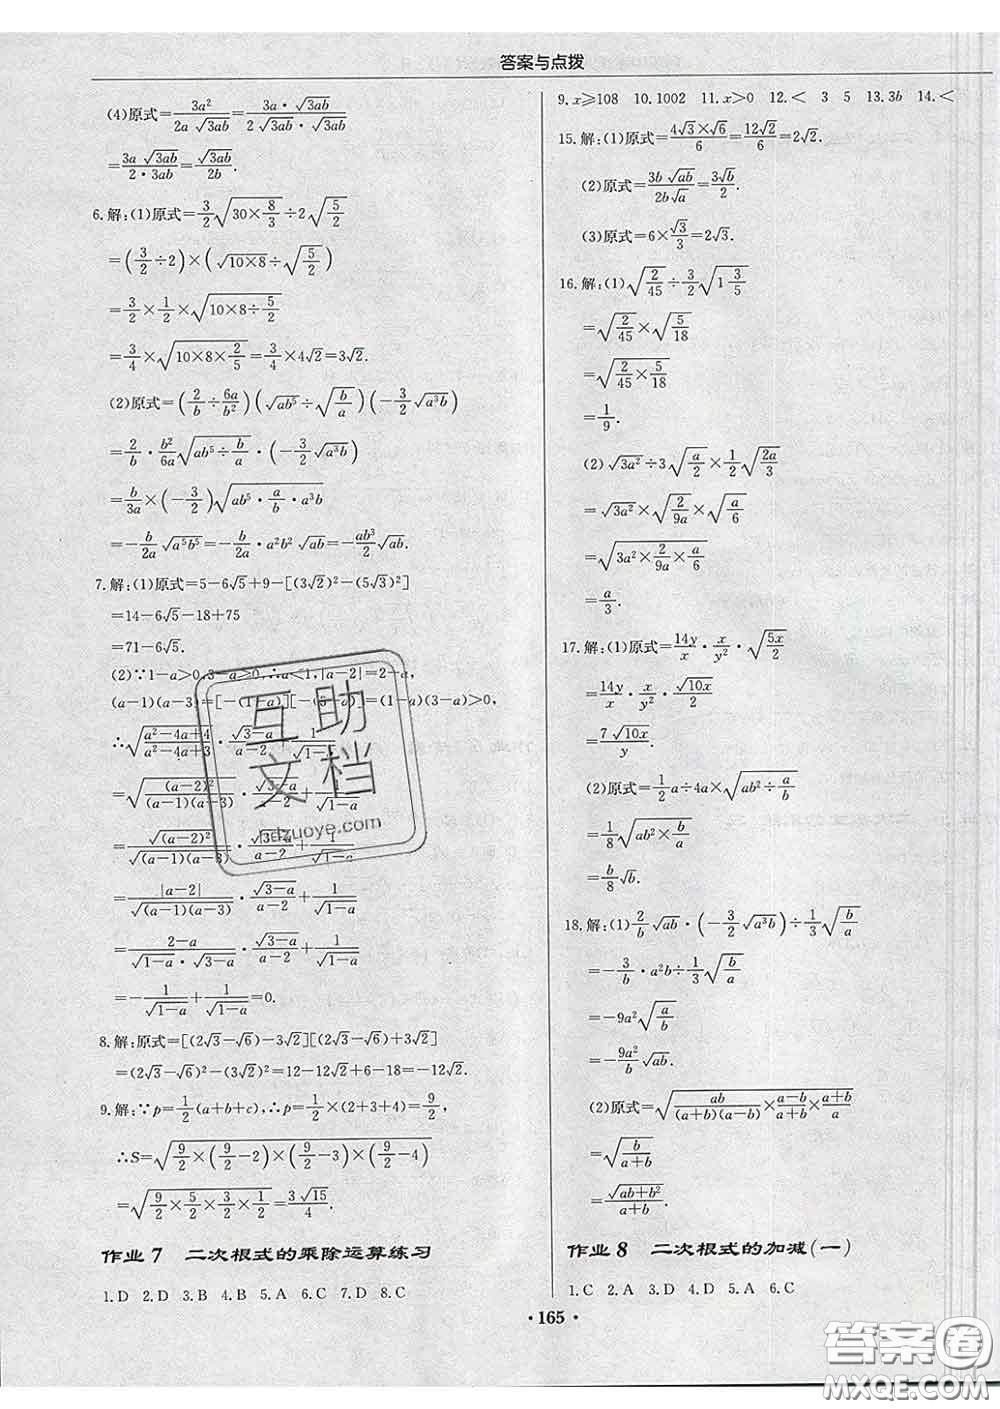 答案与点拨
(4)原式=3a²/(2a√(3ab))=(3a·√(3ab))/(2√(3ab)·√(3ab))
=(3a√(3ab))/(2·3ab)=√(3ab)/(2b).
6.解:(1)原式=3/2√(30×8/3)÷2√(5/2)
=(3/2÷2)×(√(10×8)÷√(5/2))
=3/2×1/2×√(10×8÷5/2)
=3/4×√(10×8×2/5)=3/4×4√2=3√2.
(2)原式=(2/b÷6a/b²)(√(ab⁵)÷√(b/a))(-3/2√(a³b))
=2/b·b²/(6a)√(ab⁵÷b/a)·(-3/2√(a³b))
=b/(3a)×(-3/2)√(ab⁵·a/b·a³b)
=-b/(2a)√(a⁵b⁵)=-b/(2a)·a²b²√(ab)=-ab³/2√(ab).
7.解:(1)原式=5-6√5+9-[(3√2)²-(5√3)²]
=14-6√5-18+75
=71-6√5.
(2)∵1-a>0,3-a>0,∴a<1,|a-2|=2-a,
(a-1)(a-3)=[-(1-a)][-(3-a)]=(1-a)(3-a)>0,
∴√((a²-4a+4)/(a²-4a+3))·√(3-a)/(a-2)+1/√(1-a)
=√((a-2)²/((a-1)(a-3)))·√(3-a)/(a-2)+1/√(1-a)
=√((a-2)²)/√((a-1)(a-3))·√(3-a)/(a-2)+1/√(1-a)
=|a-2|/√((a-1)(a-3))·√(3-a)/(a-2)+1/√(1-a)
=(2-a)/(√(1-a)·√(3-a))·√(3-a)/(a-2)+1/√(1-a)
=-1/√(1-a)+1/√(1-a)=0.
8.解:原式=[(2√3-√6)-3√2][(2√3-√6)+3√2]
=(2√3-√6)²-(3√2)²=12-12√2+6-18=-12√2.
9.解:∵p=1/2(a+b+c),∴p=1/2×(2+3+4)=9/2,
∴S=√(9/2×(9/2-2)×(9/2-3)×(9/2-4))
=√(9/2×5/2×3/2×1/2)=3√15/4.
作业7 二次根式的乘除运算练习
1.D 2.D 3.B 4.B 5.A 6.C 7.D 8.C
9.x≥108 10.1002 11.x>0 12.< 3 5 13.3b 14.<
15.解:(1)原式=(4√3×√6)/6=12√2/6=2√2.
(2)原式=(3b√(ab))/(2b√a)=3√b/2.
(3)原式=6×√3/3=2√3.
16.解:(1)√(2/45)÷3/2√(1 3/5)
=√(2/45)×√(5/18)
=√(2/45×5/18)
=1/9.
(2)√(3a²)÷3√(a/2)×1/2√(2a/3)
=√(3a²)×√(2/(9a))×√(a/6)
=√(3a²×2/(9a)×a/6)
=a/3.
17.解:(1)原式=14y/x·x/y²·√(5x/2)
=14y/x·x/y²·√(10x)/2
=7√(10x)/y.
(2)原式=1/2a÷4a×√(ab²÷a/b)
=1/8√(ab²×b/a)
=b/8√b.
18.解:(1)2/b√(ab)·(-3/2√(a³b))÷1/3√(b/a)
=-3/b·a²b÷1/3√(b/a)
=-9a²√(a/b)
=-9a²/b√(ab).
(2)原式=√(ab/((a+b)(a-b))×(a-b)/(a+b)×(a+b)/a)
=√(b/(a+b))
=√(ab+b²)/(a+b).
作业8 二次根式的加减(一)
1.C 2.A 3.D 4.D 5.A 6.C
·165·
互助文档
jdzuoye.com
答案圈
MXQE.COM